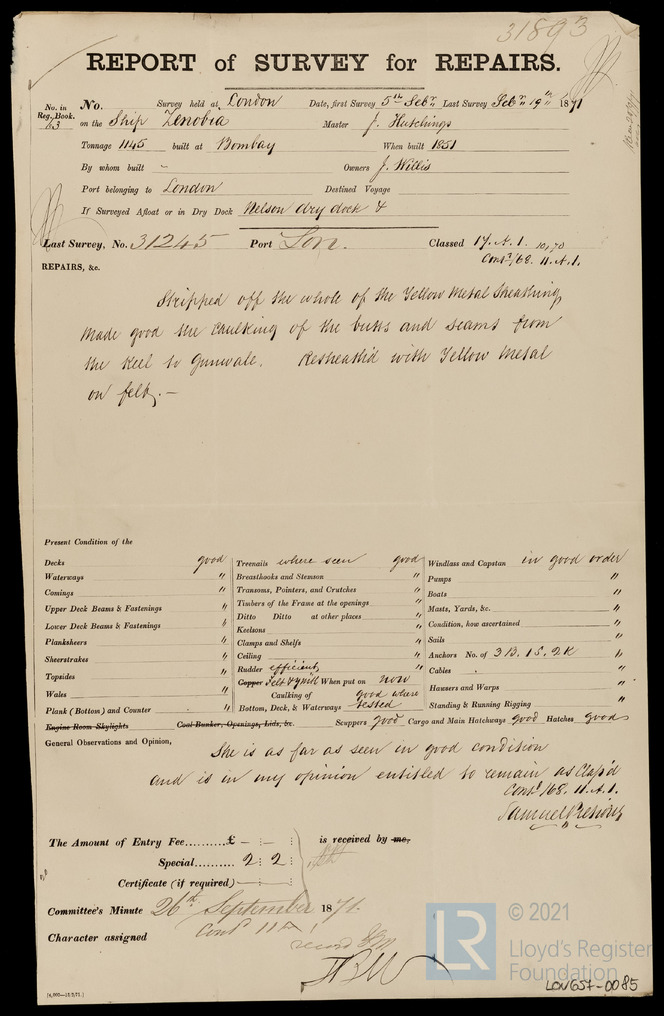 31893
REPORT of SURVEY for REPAIRS.
No. in Reg. Book. No. Survey held at London Date, first Survey 5th Sebr Last Survey Sebr 19th 1871
53 on the Ship Zenobia Master J. Hutchings
Tonnage 1145 built at Bombay When built 1851
By whom built " Owners J. Willis
Port belonging to London Destined Voyage
If Surveyed Afloat or in Dry Dock Nelson dry dock &
Last Survey, No. 31245 Port Lon. Classed 17. A. 1. 10,70
Contd /68. 11. A. 1.
REPAIRS, &c.
Stripped off the whole of the Yellow Metal Sheathing,
Made good the Caulking of the butts and seams from
the Keel to Gunwale. Resheath'd with Yellow Metal
on felt. —
Present Condition of the
Decks good Treenails where seen good Windlass and Capstan in good order
Waterways " Breasthooks and Stemson " Pumps "
Comings " Transoms, Pointers, and Crutches " Boats "
Upper Deck Beams & Fastenings " Timbers of the Frame at the openings " Masts, Yards, &c. "
Lower Deck Beams & Fastenings " Ditto Ditto at other places " Condition, how ascertained "
Planksheers " Keelsons " Sails "
Sheerstrakes " Clamps and Shelfs " Anchors No. of 3B. 1S. 2K "
Topsides " Ceiling " Cables "
Wales " Rudder efficient Hawsers and Warps "
Plank (Bottom) and Counter " Copper Felt & YM When put on now Standing & Running Rigging "
Caulking of Bottom, Deck, & Waterways good where tested
Engine Room Skylights Coal-Bunker, Openings, Lids, &c. Scuppers good Cargo and Main Hatchways good Hatches good
General Observations and Opinion,
She is as far as seen in good condition
and is in my opinion entitled to remain as Class'd
Contd /68. 11. A. 1.
Samuel
The Amount of Entry Fee..........£ - : - is received by me,
Special.......... 2 : 2
Certificate (if required)
Committee's Minute 26th September 1871.
Character assigned Contd 11 A 1
record
[4,000—15/2/71.]
LR
© 2021
Lloyd's Register
Foundation
LON657-0085